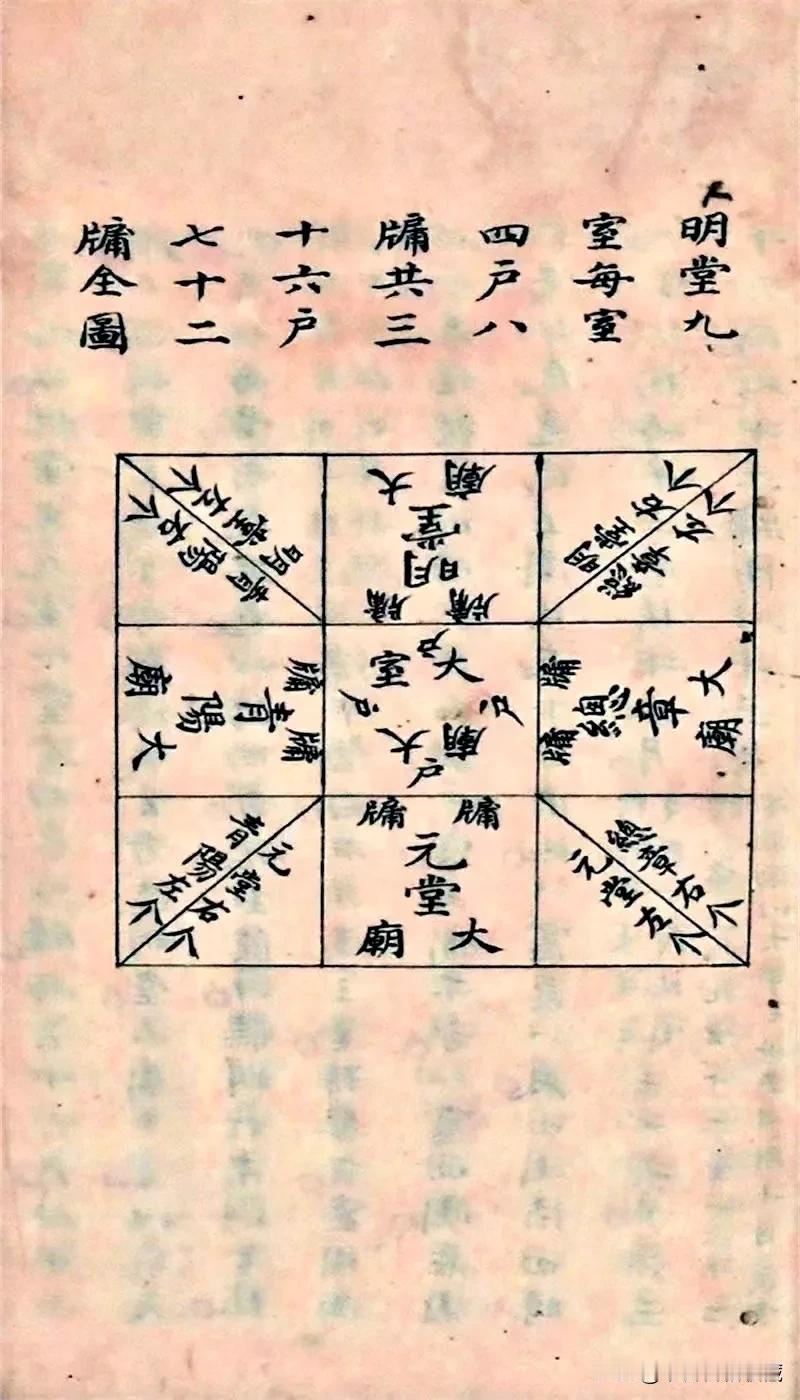 明堂九
室每室
四户八
牖共三
十六户
七十二
牖全圖
明堂右个
總章左个
明堂
大廟
牖
牖
明堂左个
青陽右个
總章
大廟
牖
牖
大室
大廟
户
户
户
户
青陽
大廟
牖
牖
總章右个
元堂左个
牖
牖
元堂
大廟
元堂右个
青陽左个
藏